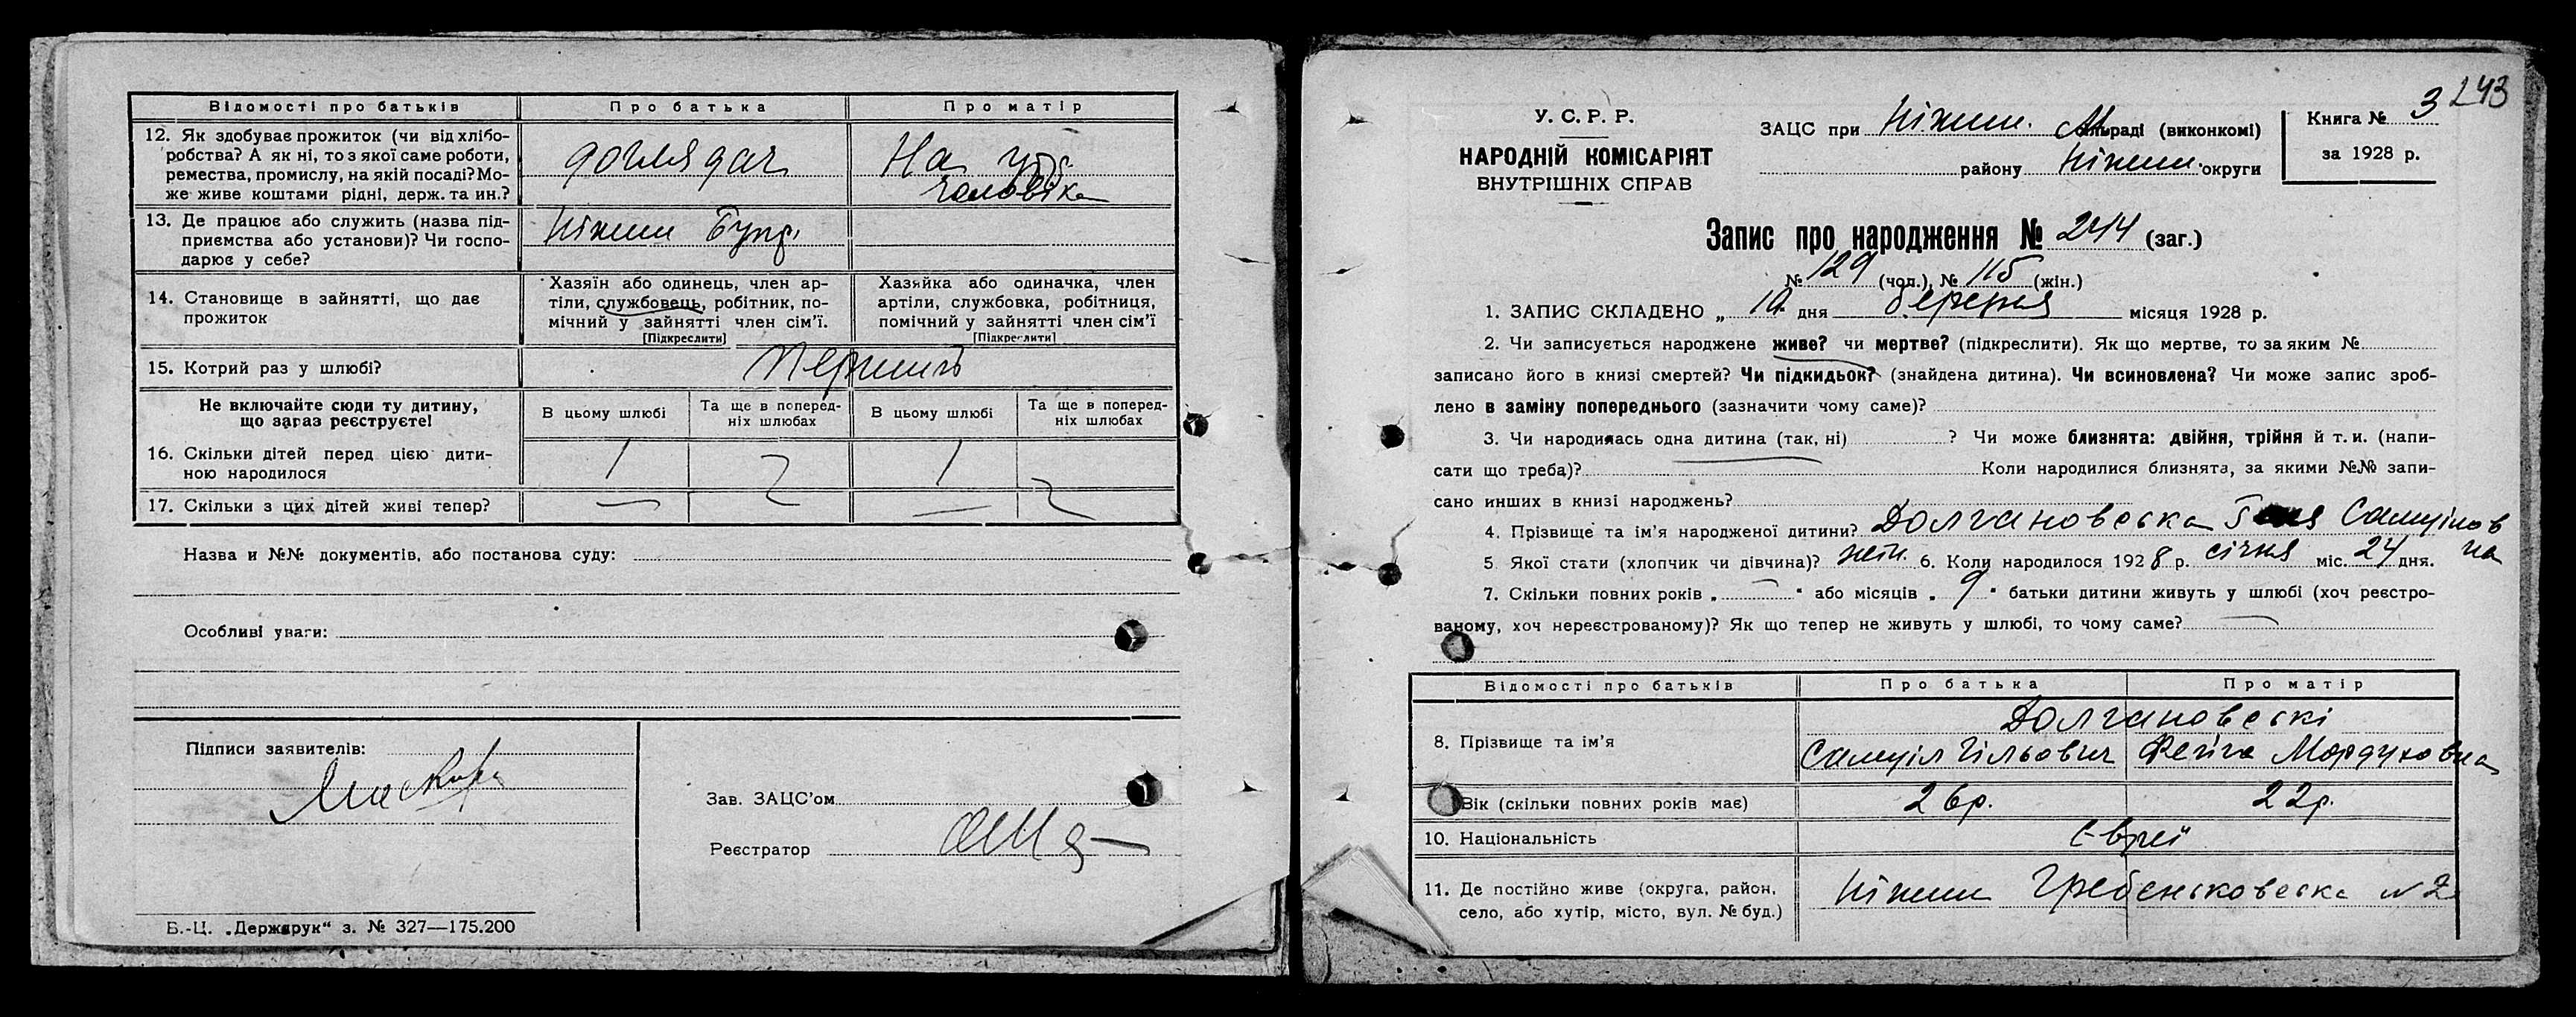 Відомості про батьків
Про батька
Про матір
12. Як здобуває прожиток (чи від хлібо-
робства? А як ні, то з якої саме роботи,
ремества, промислу, на якій посаді? Мо-
же живе коштами рідні, держ. та ин.?
доглядач
На утр.
чоловіка
13. Де працює або служить (назва під-
приємства або установи)? Чи госпо-
дарює у себе?
Ніжин
14. Становище в зайнятті, що дає
прожиток
Хазяїн або одинець, член ар-
тіли, службовець, робітник, по-
мічний у зайнятті член сім’ї.
[Підкреслити]
Хазяйка або одиначка, член
артіли, службовка, робітниця,
помічний у зайнятті член сім’ї
[Підкреслити]
15. Котрий раз у шлюбі?
Не включайте сюди ту дитину,
що зараз реєструєте!
В цьому шлюбі
Та ще в поперед-
ніх шлюбах
В цьому шлюбі
Та ще в поперед-
ніх шлюбах
16. Скільки дітей перед цією дити-
ною народилося
1
1
17. Скільки з цих дітей живі тепер?
—
—
Назва и №№ документів, або постанова суду:
Особливі уваги:
Підписи заявителів:
Зав. ЗАЦС’ом
Реєстратор
Б.-Ц. „Держдрук“ з. № 327—175.200
243
У. С. Р. Р.
НАРОДНІЙ КОМІСАРІЯТ
ВНУТРІШНІХ СПРАВ
ЗАЦС при Ніжин. раді (виконкомі)
району Ніжин. округи
Книга № 3
за 1928 р.
Запис про народження № 244 (заг.)
№ 129 (чол.), № 115 (жін.)
1. ЗАПИС СКЛАДЕНО „ 10 дня березня місяця 1928 р.
2. Чи записується народжене живе? чи мертве? (підкреслити). Як що мертве, то за яким №
записано його в книзі смертей? Чи підкидьок? (знайдена дитина). Чи всиновлена? Чи може запис зроб-
лено в заміну попереднього (зазначити чому саме)?
3. Чи народилась одна дитина (так, ні) ? Чи може близнята: двійня, трійня й т. и. (напи-
сати що треба)? Коли народилися близнята, за якими №№ запи-
сано инших в книзі народжень?
4. Прізвище та ім’я народженої дитини? Долгановська Самуілов
на
5. Якої стати (хлопчик чи дівчина)? жін. 6. Коли народилося 1928 р. січня міс. 24 дня.
7. Скільки повних років „ — “ або місяців „ 9 “ батьки дитини живуть у шлюбі (хоч реєстро-
ваному, хоч нереєстрованому)? Як що тепер не живуть у шлюбі, то чому саме? —
Відомості про батьків
Про батька
Про матір
8. Прізвище та ім’я
Долгановські
Самуіл Гільович
Фейга Мордуховна
Вік (скільки повних років має)
26р.
22р.
10. Національність
Євреї
11. Де постійно живе (округа, район,
село, або хутір, місто, вул. № буд.)
Ніжин Гребеньковська № 2